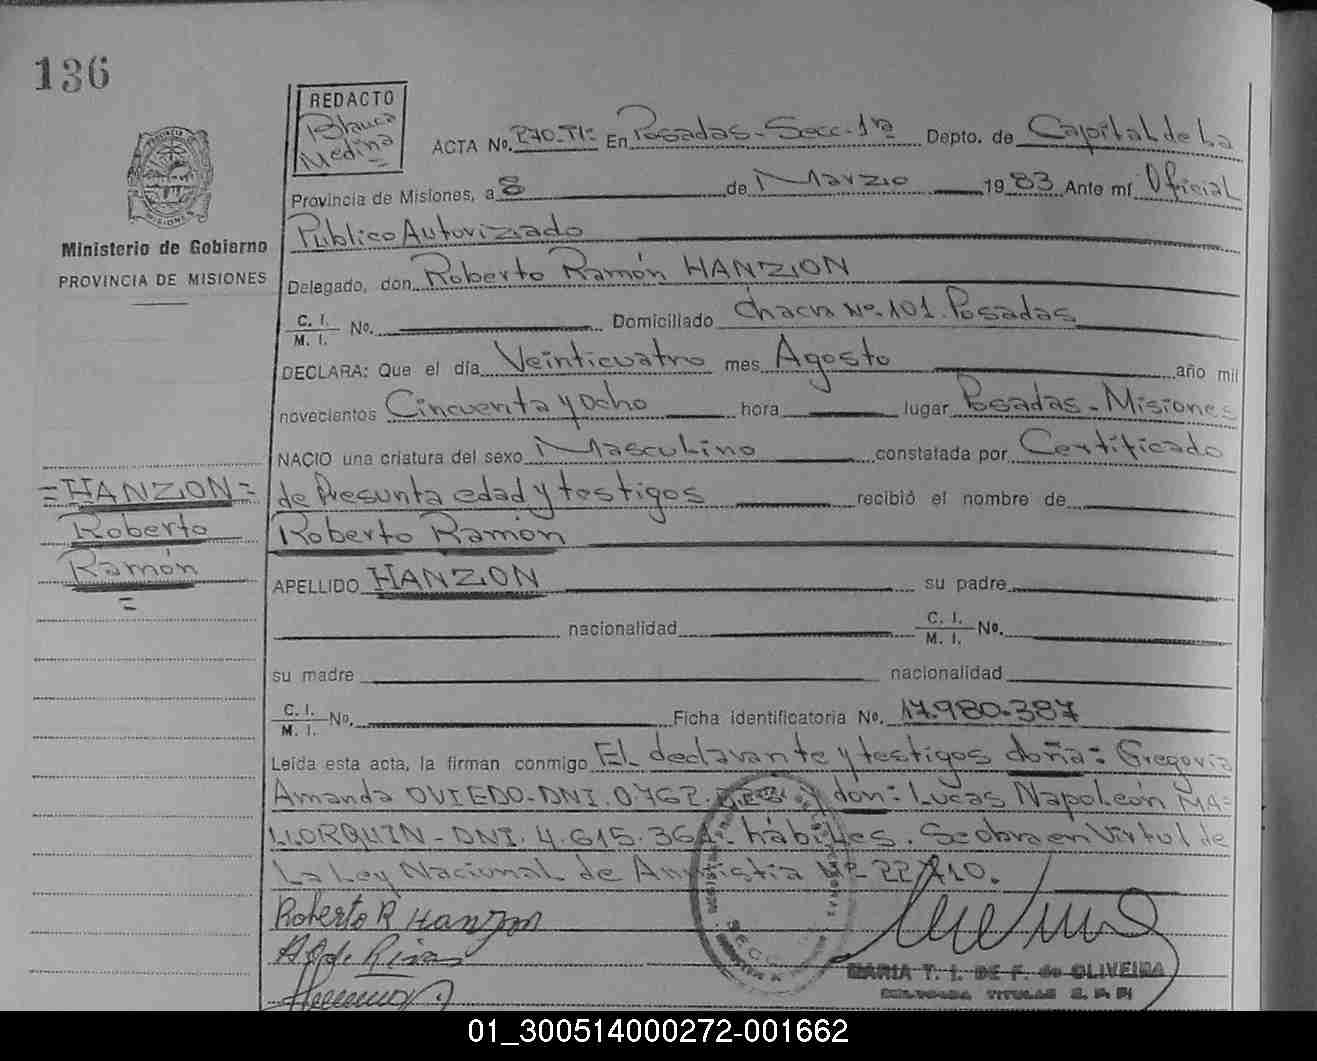 136
REDACTO
Blanca
Medina
ACTA No. 270-TI= En Posadas-Secc-1ra Depto. de Capital de La
Provincia de Misiones, a 8 de Marzo 1983 Ante mí Oficial
Publico Autorizado
Ministerio de Gobierno
PROVINCIA DE MISIONES
Delegado, don Roberto Ramón HANZION
C. I.
M. I. No. Domiciliado Chacra Nº-101. Posadas
DECLARA: Que el día Veinticuatro mes Agosto año mil
novecientos Cincuenta y ocho hora lugar Posadas - Misiones
NACIO una criatura del sexo Masculino constatada por Certificado
de Presunta edad y testigos recibió el nombre de
=HANZION=
Roberto
Ramón
=
Roberto Ramón
APELLIDO HANZION su padre
nacionalidad C. I.
M. I. No.
su madre nacionalidad
C. I.
M. I. No. Ficha identificatoria No. 17.980.387
Leída esta acta, la firman conmigo El declarante y testigos doña: Gregoria
Amanda OVIEDO-DNI. 0.762. y don: Lucas Napoleón MA=
LLORQUIN - DNI. 4.615.36 - hábiles. Se obra en Virtud de
La Ley Nacional de Amnistia Nº- 22.410.
Roberto R Hanzion
MARIA T. I. DE F. de OLIVEIRA
DELEGADA TITULAR
01_300514000272-001662